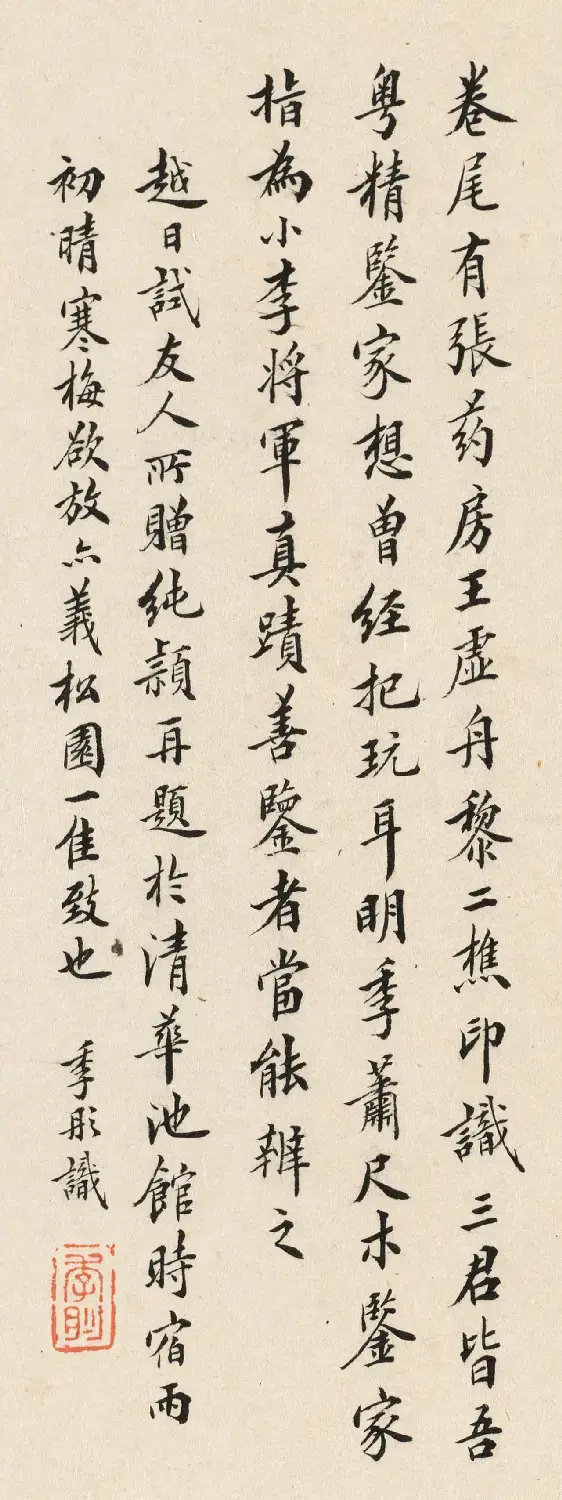 卷尾有張药房王虚舟黎二樵印識三君皆吾
粤精鑒家想曾經把玩耳明季蕭尺木鑒家
指為小李将軍真蹟善鑒者當能辨之
越日試友人所贈純頴再題於清華池館時宿雨
初晴寒梅欲放亦義松園一隹致也 季彤識